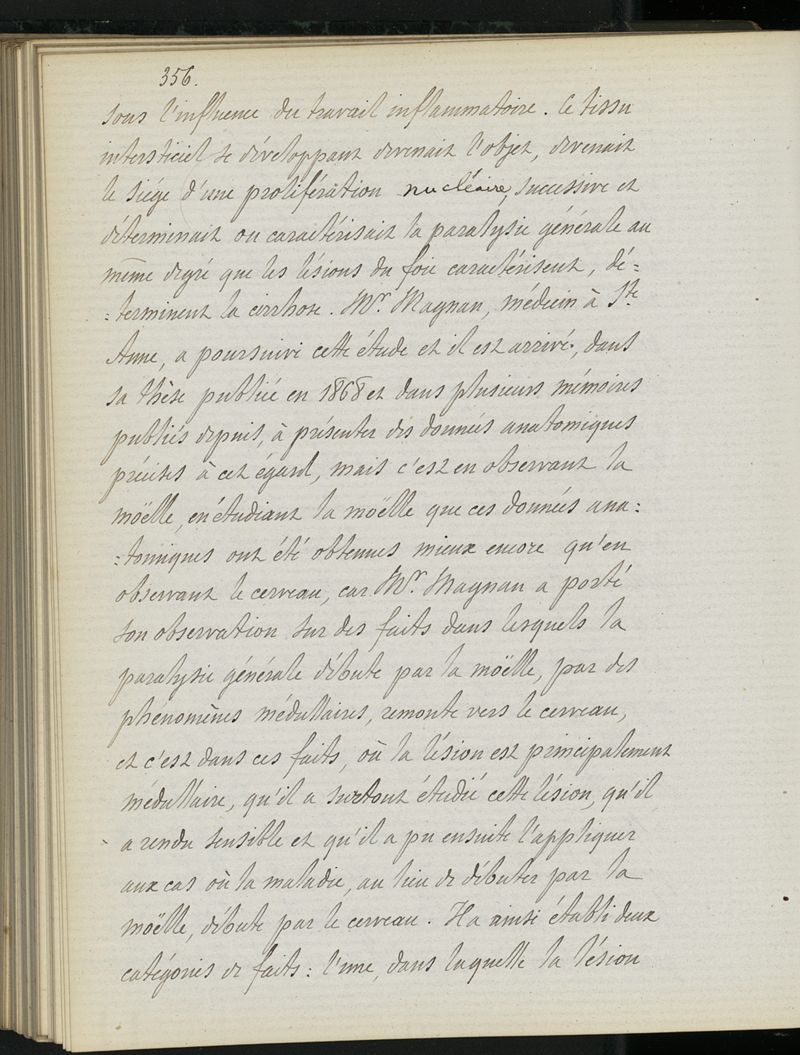 356.
sous l'influence du travail inflammatoire. Ce tissu
intersticiel se développant devenait l'objet, devenait
le siége d'une prolifération nucléaire, successive et
déterminait ou caractérisait la paralysie générale au
même degré que les lésions du foie caractérisent, dé=
=terminent la cirrhose. Mr. Magnan, médecin à Ste
Anne, a poursuivi cette étude et il est arrivé, dans
sa thèse publiée en 1868 et dans plusieurs mémoires
publiés depuis, à présenter des données anatomiques
précises à cet égard, mais c'est en observant la
moëlle, en étudiant la moëlle que ces données ana=
=tomiques ont été obtenues mieux encore qu'en
observant le cerveau, car Mr. Magnan a porté
son observation sur des faits dans lesquels la
paralysie générale débute par la moëlle, par des
phénomènes médullaires, remonte vers le cerveau,
et c'est dans ces faits, où la lésion est principalement
médullaire, qu'il a surtout étudié cette lésion, qu'il
a rendu sensible et qu'il a pu ensuite l'appliquer
aux cas où la maladie, au lieu de débuter par la
moëlle, débute par le cerveau. Il a ainsi établi deux
catégories de faits: l'une, dans laquelle la lésion